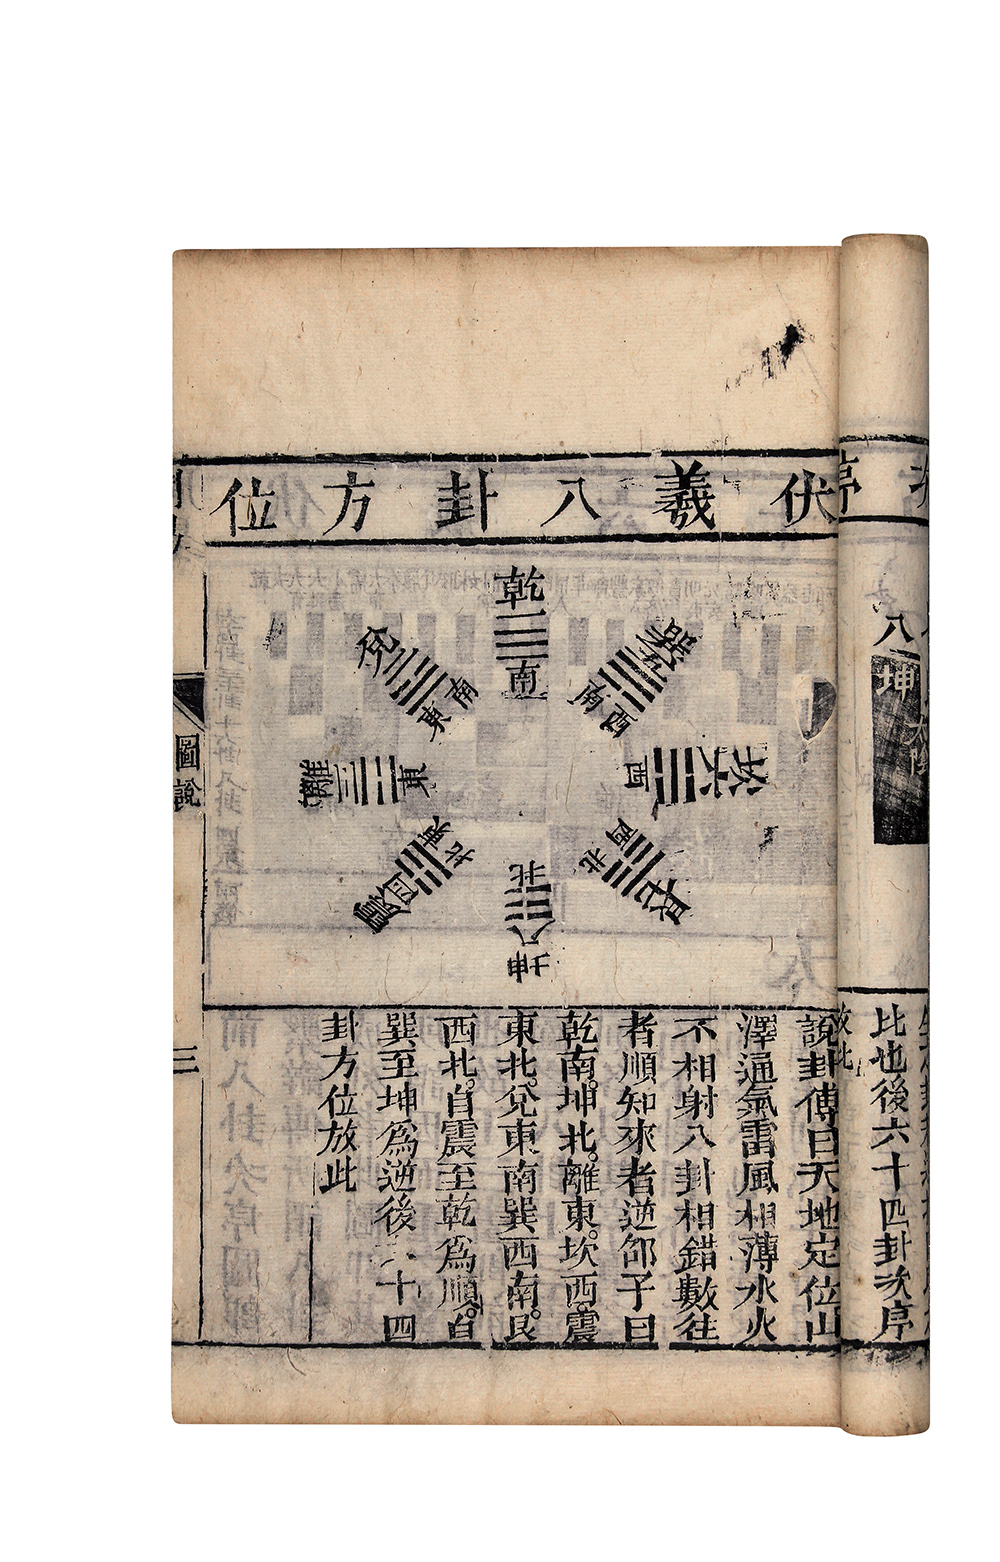 伏羲八卦方位
乾一
南
兌二
東南
離三
東
震四
東北
巽五
西南
坎六
西
艮七
西北
坤八
北
說卦傳曰天地定位山
澤通氣雷風相薄水火
不相射八卦相錯數往
者順知來者逆邵子曰
乾南。坤北。離東。坎西。震
東北。兌東南巽西南。艮
西北。自震至乾為順。自
巽至坤為逆後六十四
卦方位放此
圖說
三
序
八坤
太陰
比也後六十四卦次序
放此